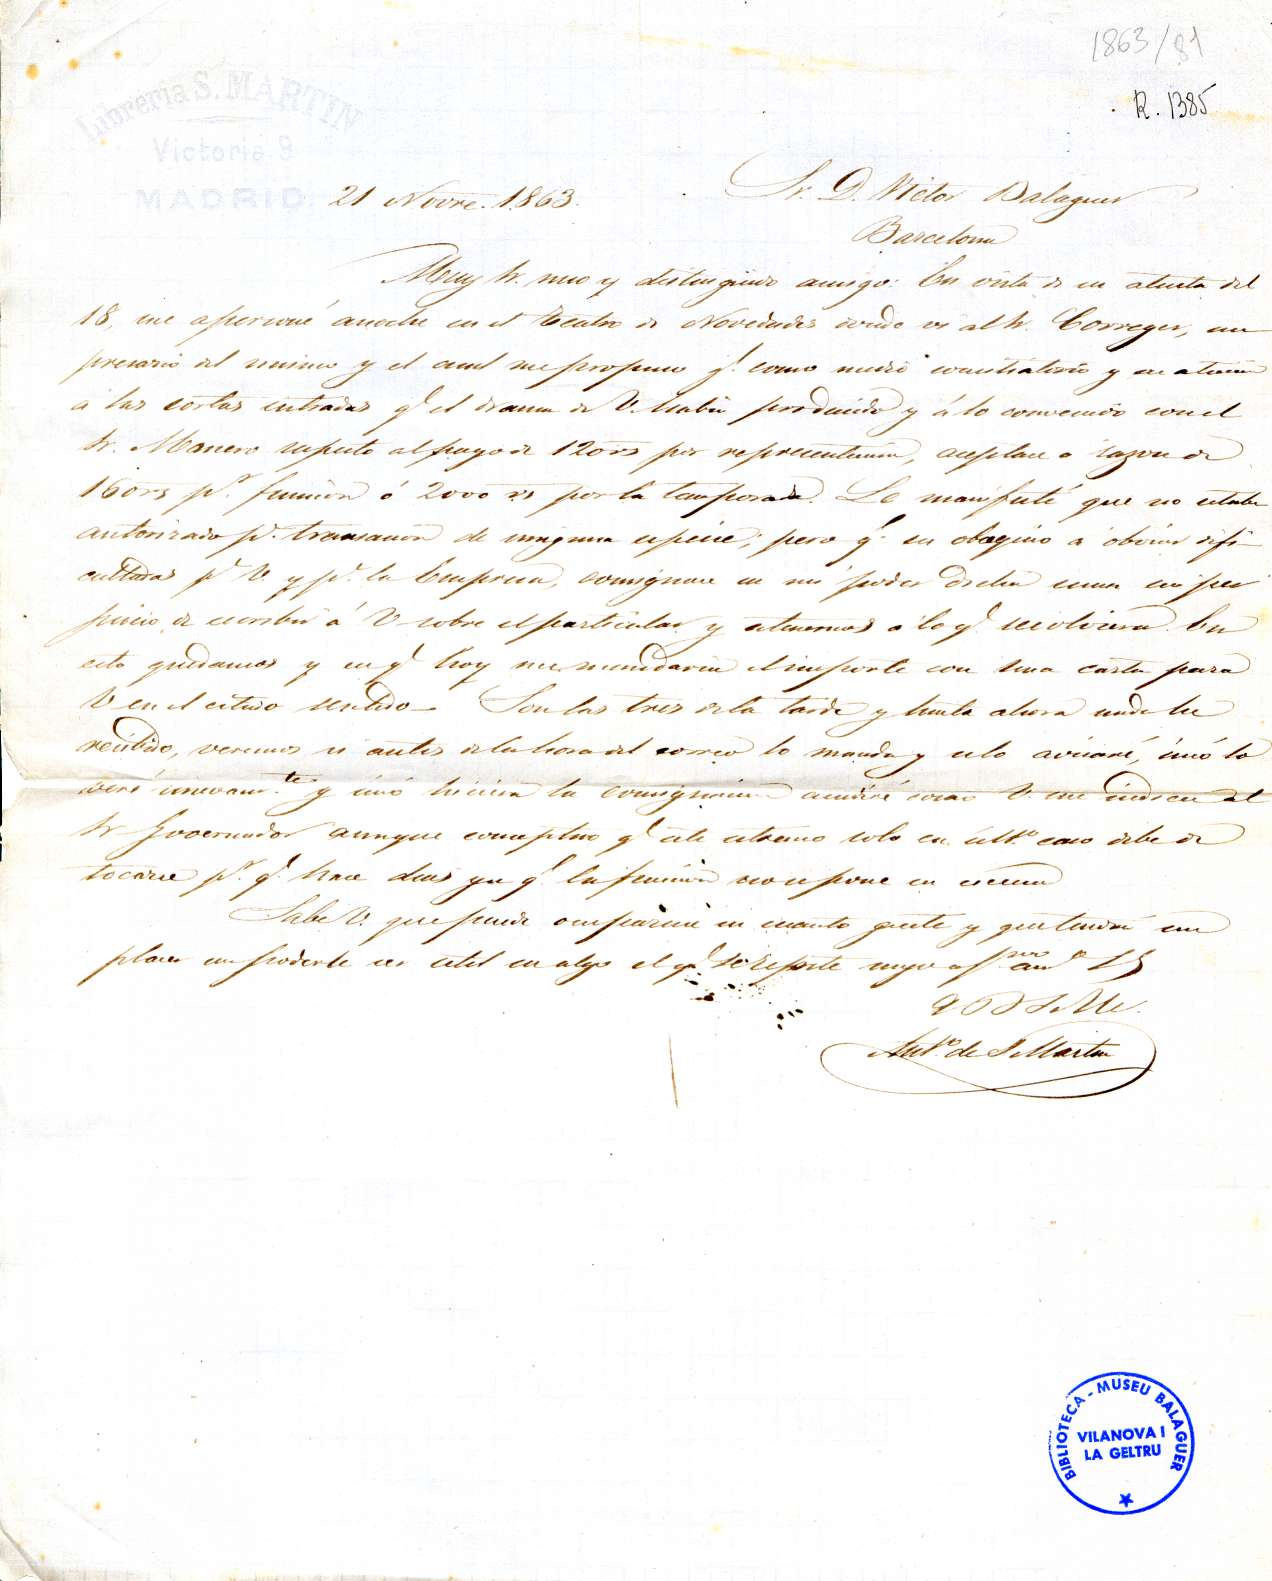 1863/81
R. 1385
Libreria S. MARTIN
Victoria 9
MADRID
21 Novre. 1863.
Sr. D. Victor Balaguer
Barcelona
Muy Sr. mio y distinguido amigo: En vista de su atenta del
18, me apersoné anoche en el teatro de Novedades donde vi al Sr. Correger, em
presario del mismo y el cual me propuso q.e como medio conciliatorio y en atencion
a las cortas entradas q.e el drama de V. habia producido y á lo convenido con el
Sr. Manero respecto al pago de 120 rs por representacion, aceptase a razon de
160 rs p.r funcion ó 2000 rs por la temporada. Le manifesté que no estaba
autorizado p.a transacion de ninguna especie; pero q.e en obsequio a obviar difi-
cultades p.a V. y p.a la Empresa, consignase en mi poder dicha suma sin per
juicio de escribir á V. sobre el particular y atenernos a lo q.e resolviera. En
esto quedamos y en q.e hoy me mandaria el importe con una carta para
V. en el citado sentido. Son las tres de la tarde y hasta ahora nada he
recibido, veremos si antes de la hora del correo lo manda y se lo avisaré, sinó lo
veré nuevam.te y sinó hiciera la consignacion acudiré como V. me indica al
Sr Governador aunque conceptuo q.e este estremo solo en últ.o caso debe de
tocarse p.r q.e hace dias ya q.e la funcion no se pone en escena
Sabe V. que puede ocuparme en cuanto guste y que tendré un
placer en poderle ser útil en algo el q.e se repite suyo af.mo am.o SS
Q B S M.
Ant.o de S. Martin
BIBLIOTECA - MUSEU BALAGUER
VILANOVA I
LA GELTRU